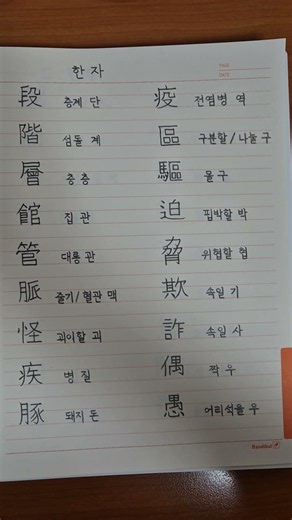 한자
PAGE
DATE
段 층계 단
階 섬돌 계
層 층 층
館 집 관
管 대롱 관
脈 줄기/혈관 맥
怪 괴이할 괴
疾 병 질
豚 돼지 돈
疫 전염병 역
區 구분할/나눌 구
驅 몰 구
迫 핍박할 박
脅 위협할 협
欺 속일 기
詐 속일 사
偶 짝 우
愚 어리석을 우